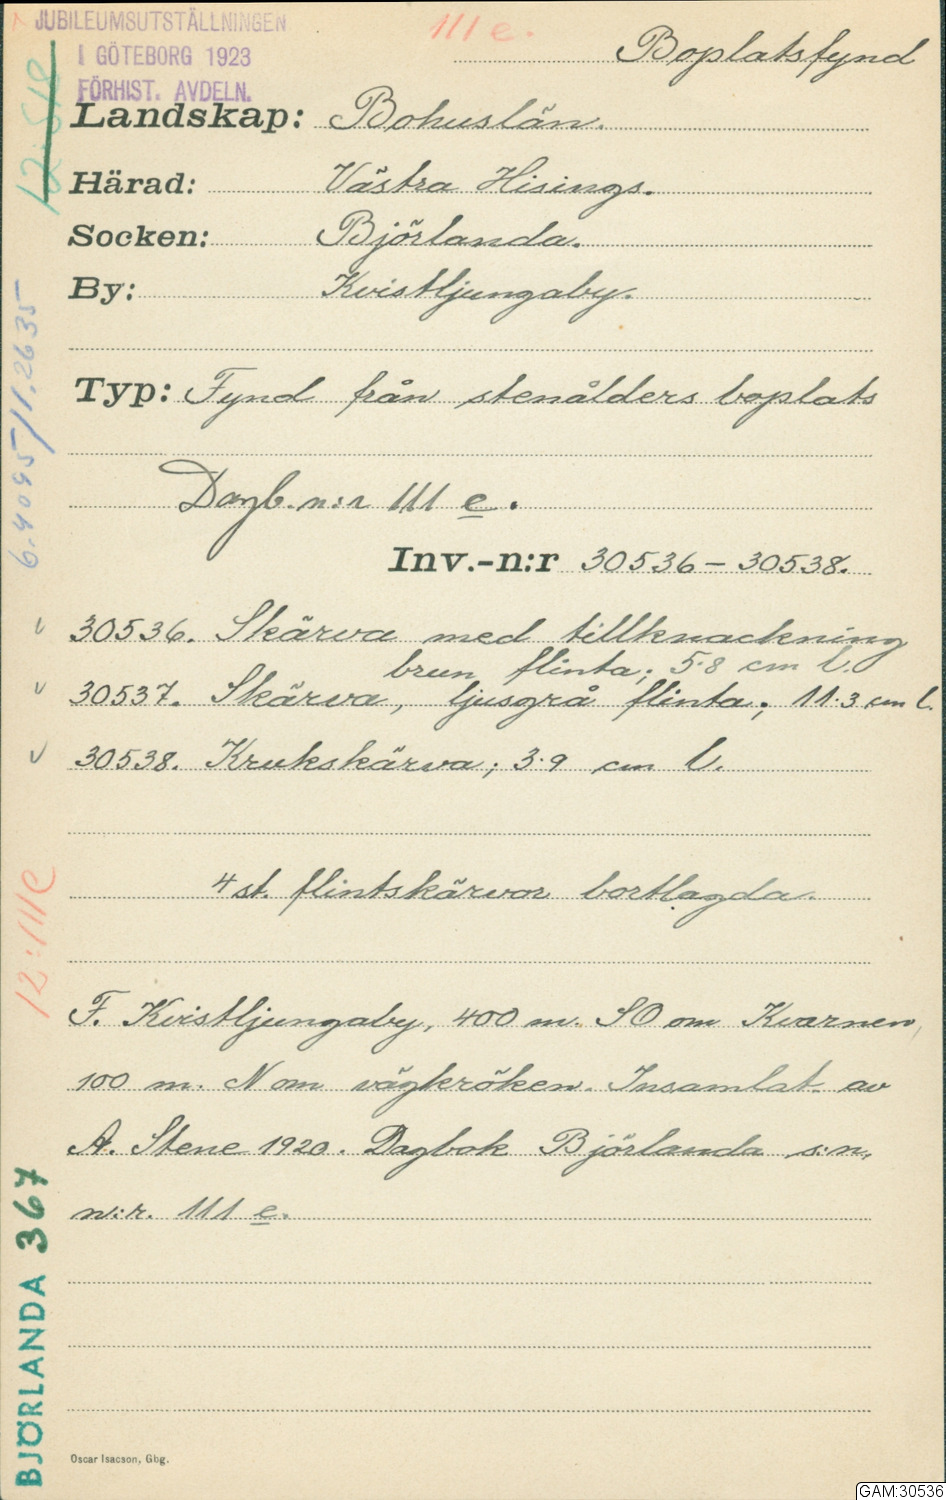 JUBILEUMSUTSTÄLLNINGEN
I GÖTEBORG 1923
FÖRHIST. AVDELN.
111 e.
Boplatsfynd
Landskap: Bohuslän.
Härad: Västra Hisings.
Socken: Björlanda.
By: Kvistljungaby.
Typ: Fynd från stenålders boplats
Dagb. n:r 111 e.
Inv.-n:r 30536 – 30538.
30536. Skärva med tillknackning
brun flinta; 5.8 cm l.
30537. Skärva, ljusgrå flinta; 11.3 cm l.
30538. Krukskärva; 3.9 cm l.
4 st. flintskärvor bortlagda.
F. Kvistljungaby, 400 m. SO om Kvarnen,
100 m. N om vägkröken. Insamlat av
A. Stene 1920. Dagbok Björlanda s:n,
n:r. 111 e.
12:111e
BJÖRLANDA 367
6.4095/1.2635
Oscar Isacson, Gbg.
GAM:30536